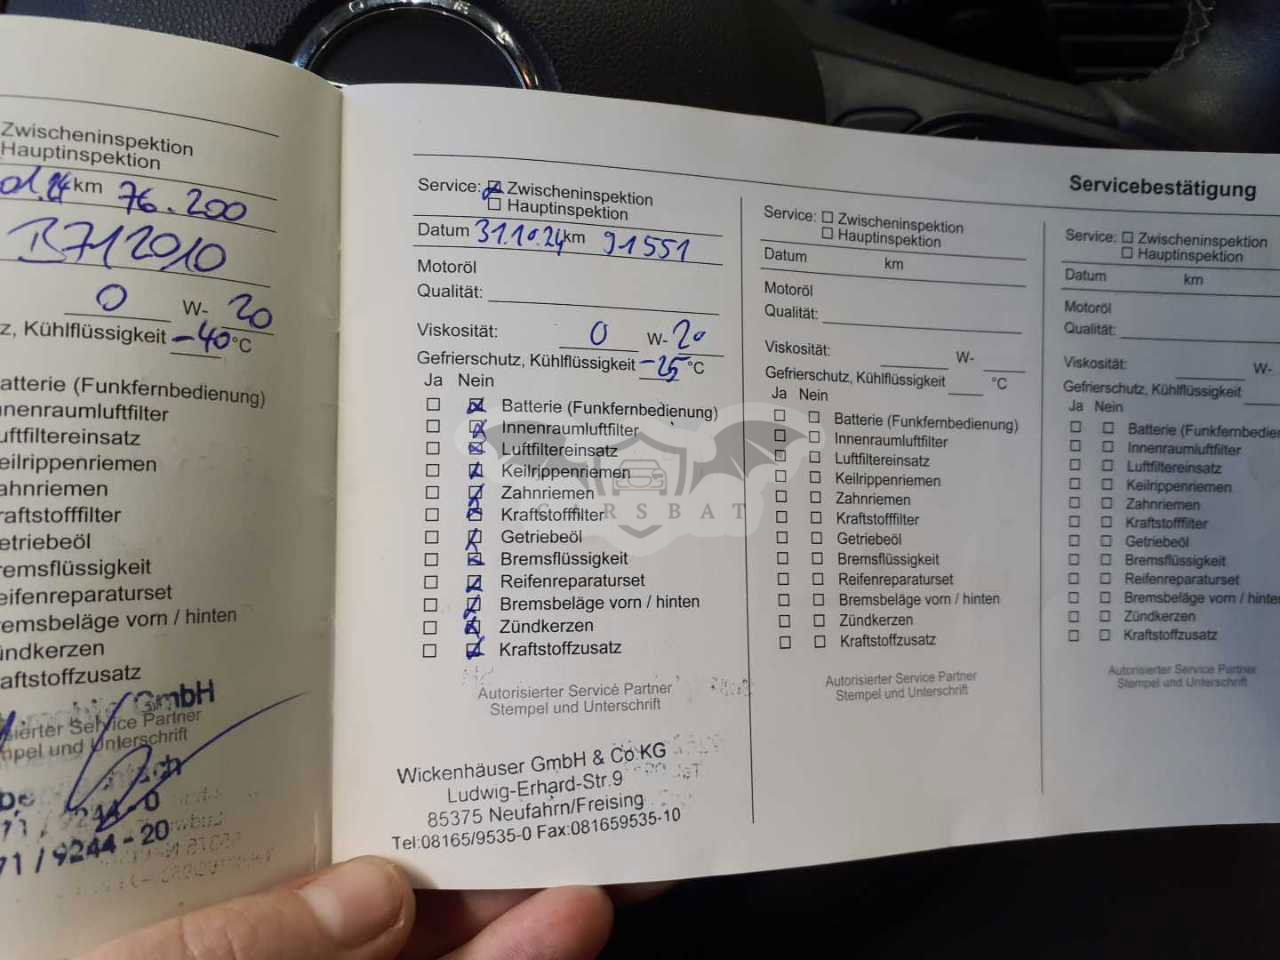 Zwischeninspektion
Hauptinspektion
.24 km 76.200
B712010
0 W- 20
Kühlflüssigkeit -40 °C
(Funkfernbedienung)
GmbH
Service Partner
und Unterschrift
71 / 9244 - 0
71 / 9244 - 20
Service: Zwischeninspektion
Hauptinspektion
Datum 31.10.24 km 91551
Motoröl
Qualität:
Viskosität: 0 W- 20
Gefrierschutz, Kühlflüssigkeit -25 °C
Ja Nein
Batterie (Funkfernbedienung)
Innenraumluftfilter
Luftfiltereinsatz
Keilrippenriemen
Zahnriemen
Kraftstofffilter
Getriebeöl
Bremsflüssigkeit
Reifenreparaturset
Bremsbeläge vorn / hinten
Zündkerzen
Kraftstoffzusatz
Autorisierter Service Partner
Stempel und Unterschrift
Wickenhäuser GmbH & Co KG
Ludwig-Erhard-Str.9
85375 Neufahrn/Freising
Tel:08165/9535-0 Fax:081659535-10
CARSBAT
Service: Zwischeninspektion
Hauptinspektion
Datum km
Motoröl
Qualität:
Viskosität: W-
Gefrierschutz, Kühlflüssigkeit °C
Ja Nein
Batterie (Funkfernbedienung)
Innenraumluftfilter
Luftfiltereinsatz
Keilrippenriemen
Zahnriemen
Kraftstofffilter
Getriebeöl
Bremsflüssigkeit
Reifenreparaturset
Bremsbeläge vorn / hinten
Zündkerzen
Kraftstoffzusatz
Autorisierter Service Partner
Stempel und Unterschrift
Servicebestätigung
Service: Zwischeninspektion
Hauptinspektion
Datum km
Motoröl
Qualität:
Viskosität: W-
Gefrierschutz, Kühlflüssigkeit
Ja Nein
Batterie
Innenraumluftfilter
Luftfiltereinsatz
Keilrippenriemen
Zahnriemen
Kraftstofffilter
Getriebeöl
Bremsflüssigkeit
Reifenreparaturset
Bremsbeläge vorn / hinten
Zündkerzen
Kraftstoffzusatz
Autorisierter Service Partner
Stempel und Unterschrift